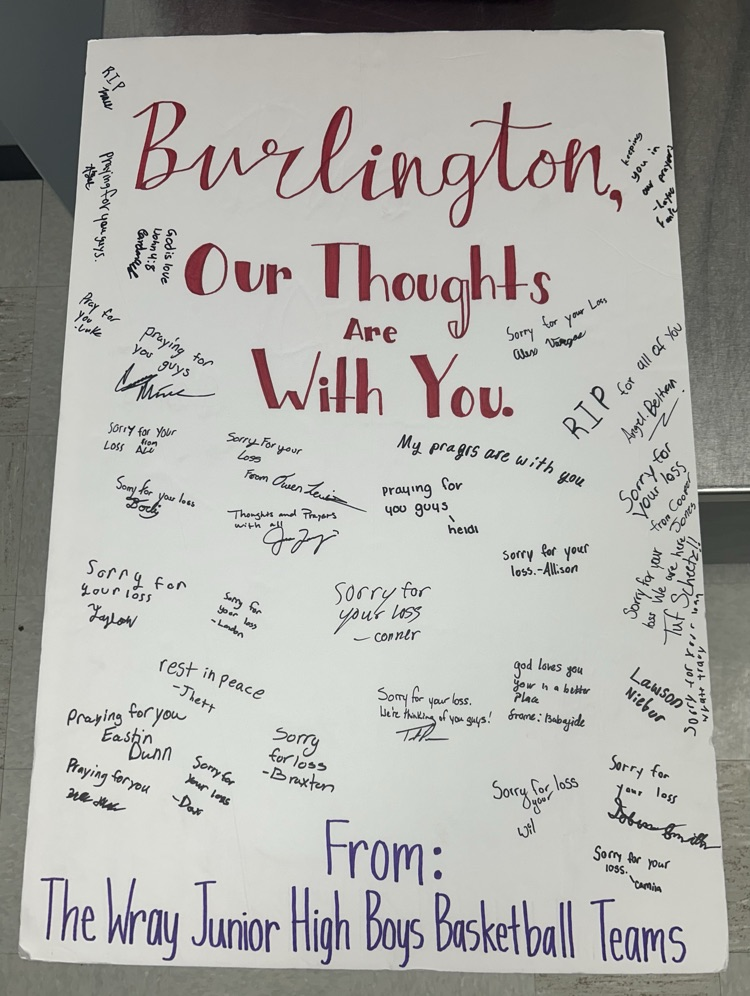 Burlington,
Our Thoughts
Are
With You.
RIP
praying for you guys.
God is love
John 4:8
keeping
you in
our prayers
Pray for
you
-Luke
praying for
you guys
Sorry for your Loss
Alex
RIP for all of you
Angel. Beltran
Sorry for your
Loss
from
Sorry For your
Loss
From Owen
My pragrs are with you
Sorry for
your loss
from Cooper
Jones
Sorry for your loss
Thoughts and Prayers
with all
praying for
you guys
heidi
sorry for your
loss.-Allison
Sorry for your
loss We are here
Tuf Scheetz!!
Sorry for
your loss
Taylow
Sorry for
your loss
-Landon
Sorry for
your loss
- conner
rest in peace
-Jhett
Sorry for your loss.
We're thinking of you guys!
god loves you
your in a better
place
from: Babajide
Lawson
Niebur
Sorry for your loss
Praying for you
Eastin
Dunn
Praying for you
Sorry for
your loss
-Dax
Sorry
for loss
-Braxten
Sorry for loss
your
Wil
Sorry for
your loss
Smith
Sorry for your
loss.
Camila
From:
The Wray Junior High Boys Basketball Teams